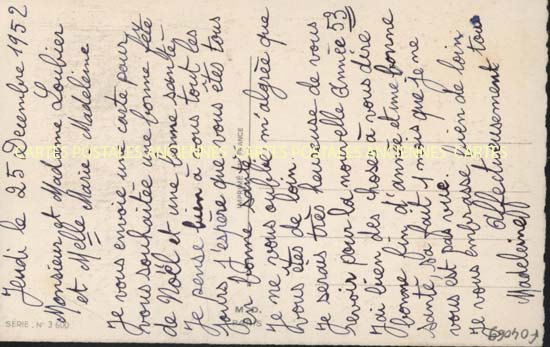 Jeudi le 25 Decembre 1952
Monsieur et Madame Loubier
et Melle Marie Madeleine
Je vous envoie une carte pour
vous souhaitée une bonne fête
de Noël et une bonne santé,
Je pense bien à vous tout les
jours j'espère que vous êtes tous
en bonne santé
Je ne vous oublie m'algrée que
vous êtes de loin
Je serais très heureuse de vous
revoir pour la nouvelle Année 53
J'ai bien des choses à vous dire
bonne fin d'année et une bonne
santé sa fait 1 mois que je ne
vous est pas vue.
Je vous embrasse bien de loin
affectueusement tous
Madeleine
M. D.
PARIS
FRANCE
SERIE . N° 3 600
CARTES POSTALES ANCIENNES CARTES POSTALES ANCIENNES CARTES
F04069